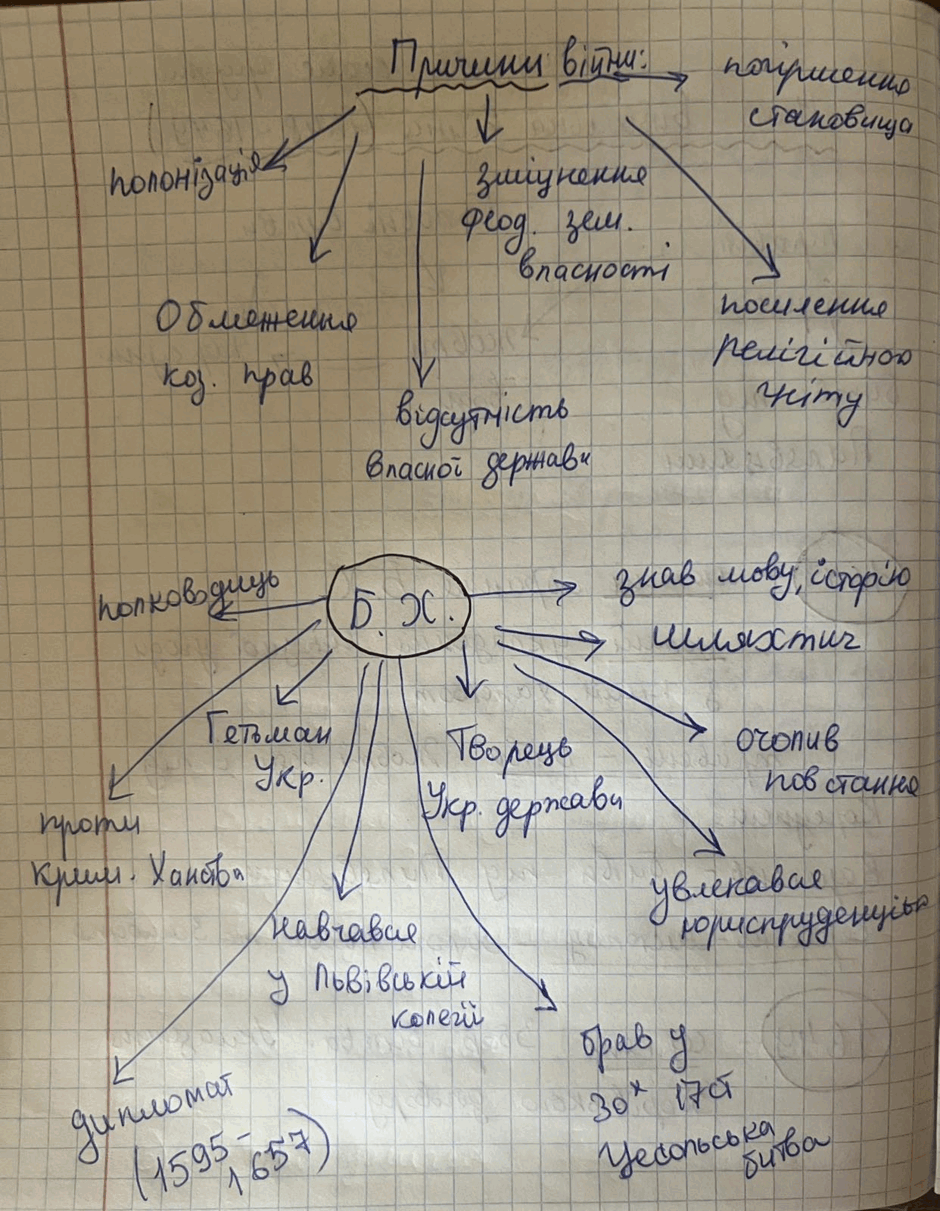 Причини війни:
погіршення
становища
полонізація
зміцнення
феод. зем.
власності
Обмеження
коз. прав
посилення
релігійного
гніту
відсутність
власної держави
Б. Х.
полководиць
знав мову, історію
шляхтич
Гетьман
Укр.
Творець
Укр. держави
очолив
повстання
проти
Крим. Ханства
увлекався
юриспруденцією
навчався
у Львівській
колегії
брав у
30х 17ст
Цесольська
битва
дипломат
(1595-
1657)